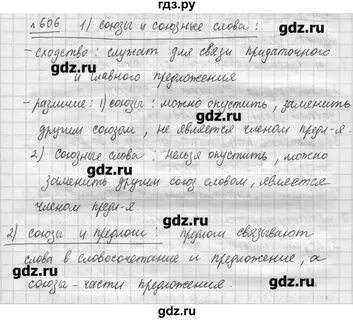 №606 1) союзы и союзные слова:
- сходство: служат для связи придаточного
и главного предложения
- различие: 1) союзы: можно опустить, заменить
другим союзом, не является членом предл-я.
2) союзные слова: нельзя опустить, можно
заменить другим союз словом, является
членом предл-я
2) союзы и предлоги: предлоги связывают
слова в словосочетание и предложение, а
союзы - части предложения.
gdz.ru
gdz.ru gdz.ru
gdz.ru gdz.ru
gdz.ru gdz.ru
gdz.ru gdz.ru